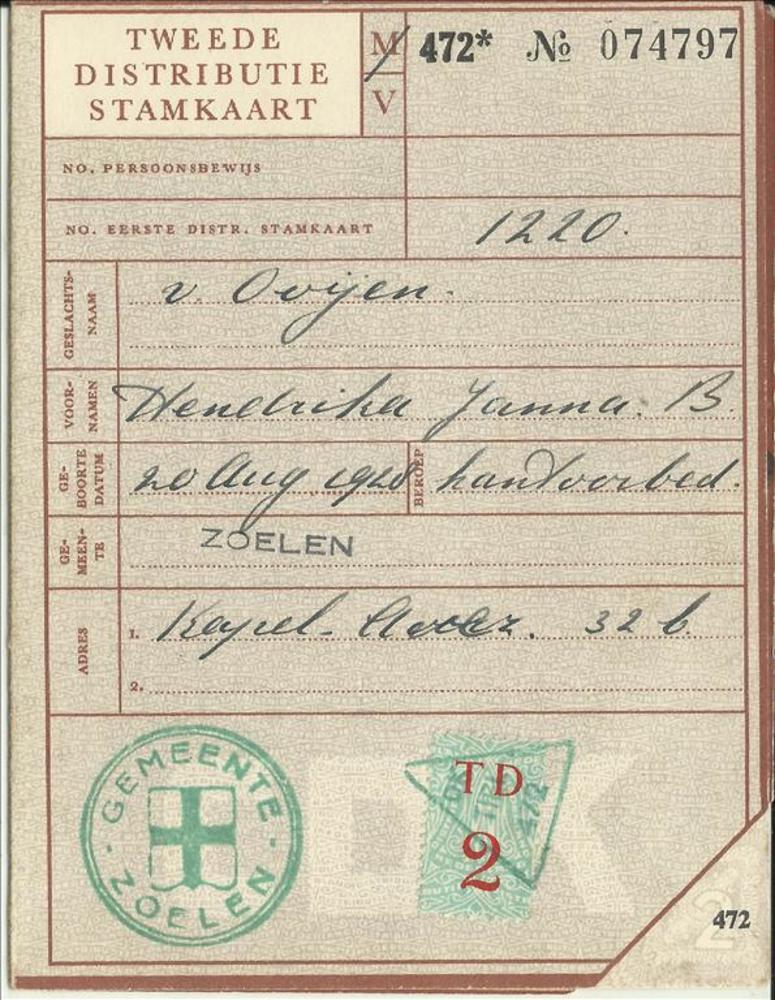 TWEEDE
DISTRIBUTIE
STAMKAART
M
V
472* № 074797
NO. PERSOONSBEWIJS
NO. EERSTE DISTR. STAMKAART 1220.
GESLACHTS-
NAAM
v. Ooijen.
VOOR-
NAMEN
Hendrika Janna. B.
GE-
BOORTE
DATUM
20 Aug 1928
BEROEP
landvoorbed.
GE-
MEEN-
TE
ZOELEN
ADRES
1. Kapel-Avez. 32 b.
2.
GEMEENTE
ZOELEN
TD
2
472
472